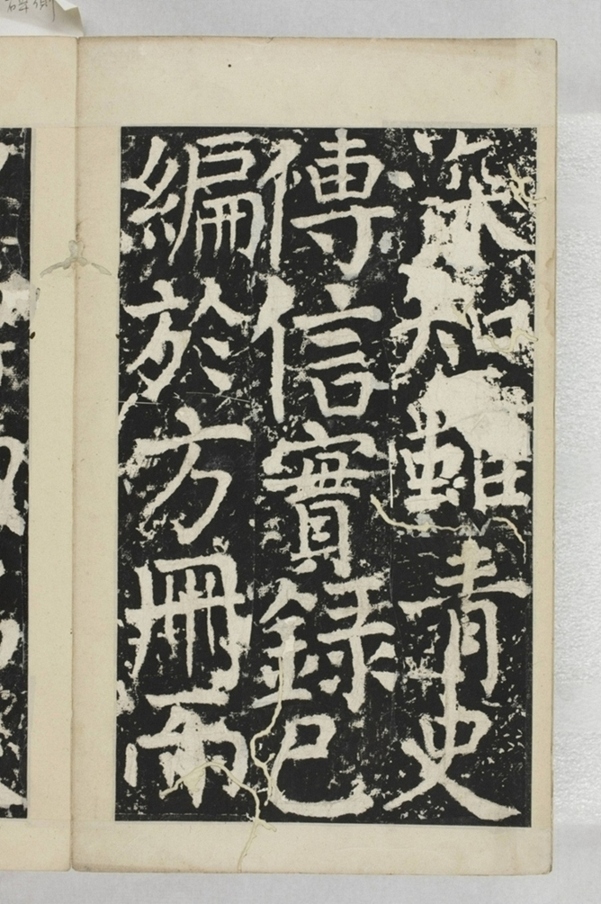 深知雖青史
傳信實錄已
編於方冊而